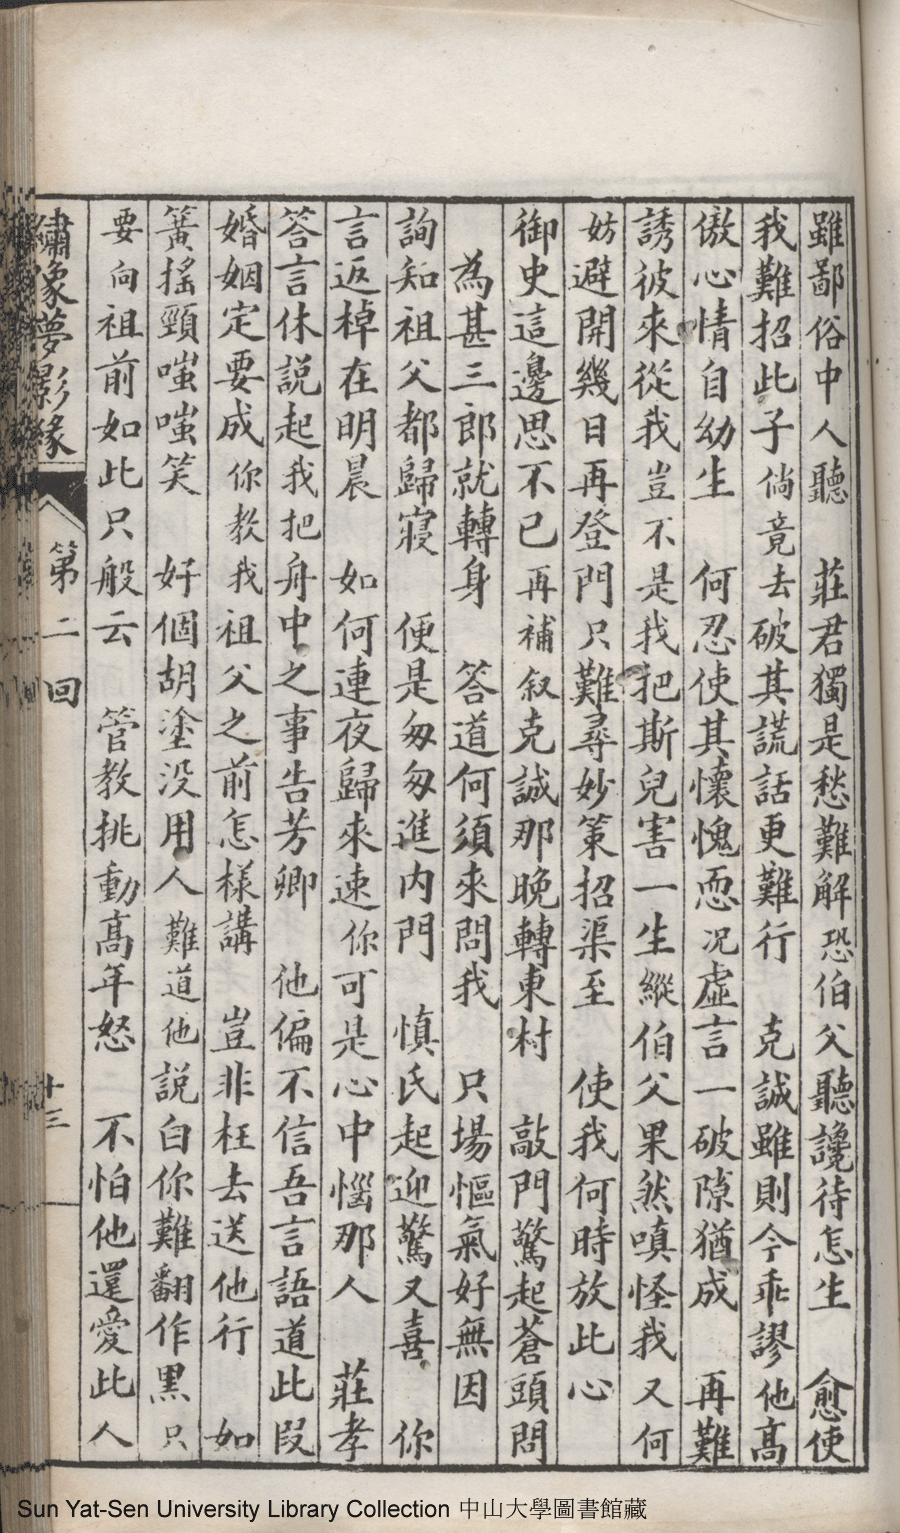 雖鄙俗中人聽　莊君獨是愁難解恐伯父聽讒待怎生　愈使
我難招此子倘竟去破其謊話更難行　克誠雖則今乖謬他高
傲心情自幼生　何忍使其懷愧恧况虛言一破隙猶成　再難
誘彼來從我豈不是我把斯兒害一生縱伯父果然嗔怪我又何
妨避開幾日再登門只難尋妙策招渠至　使我何時放此心
御史這邊思不已再補叙克誠那晚轉東村　敲門驚起蒼頭問
為甚三郎就轉身　答道何須來問我　只場慪氣好無因
詢知祖父都歸寢　便是匆匆進內門　慎氏起迎驚又喜　你
言返棹在明晨　如何連夜歸來速你可是心中惱那人　莊孝
答言休説起我把舟中之事告芳卿　他偏不信吾言語道此段
婚姻定要成你教我祖父之前怎樣講　豈非枉去送他行　如
簧搖頸嗤嗤笑　好個胡塗没用人難道他説白你難翻作黑只
要向祖前如此只般云　管教挑動高年怒　不怕他還愛此人
繡像夢影緣　第二回
十三
Sun Yat-Sen University Library Collection 中山大學圖書館藏